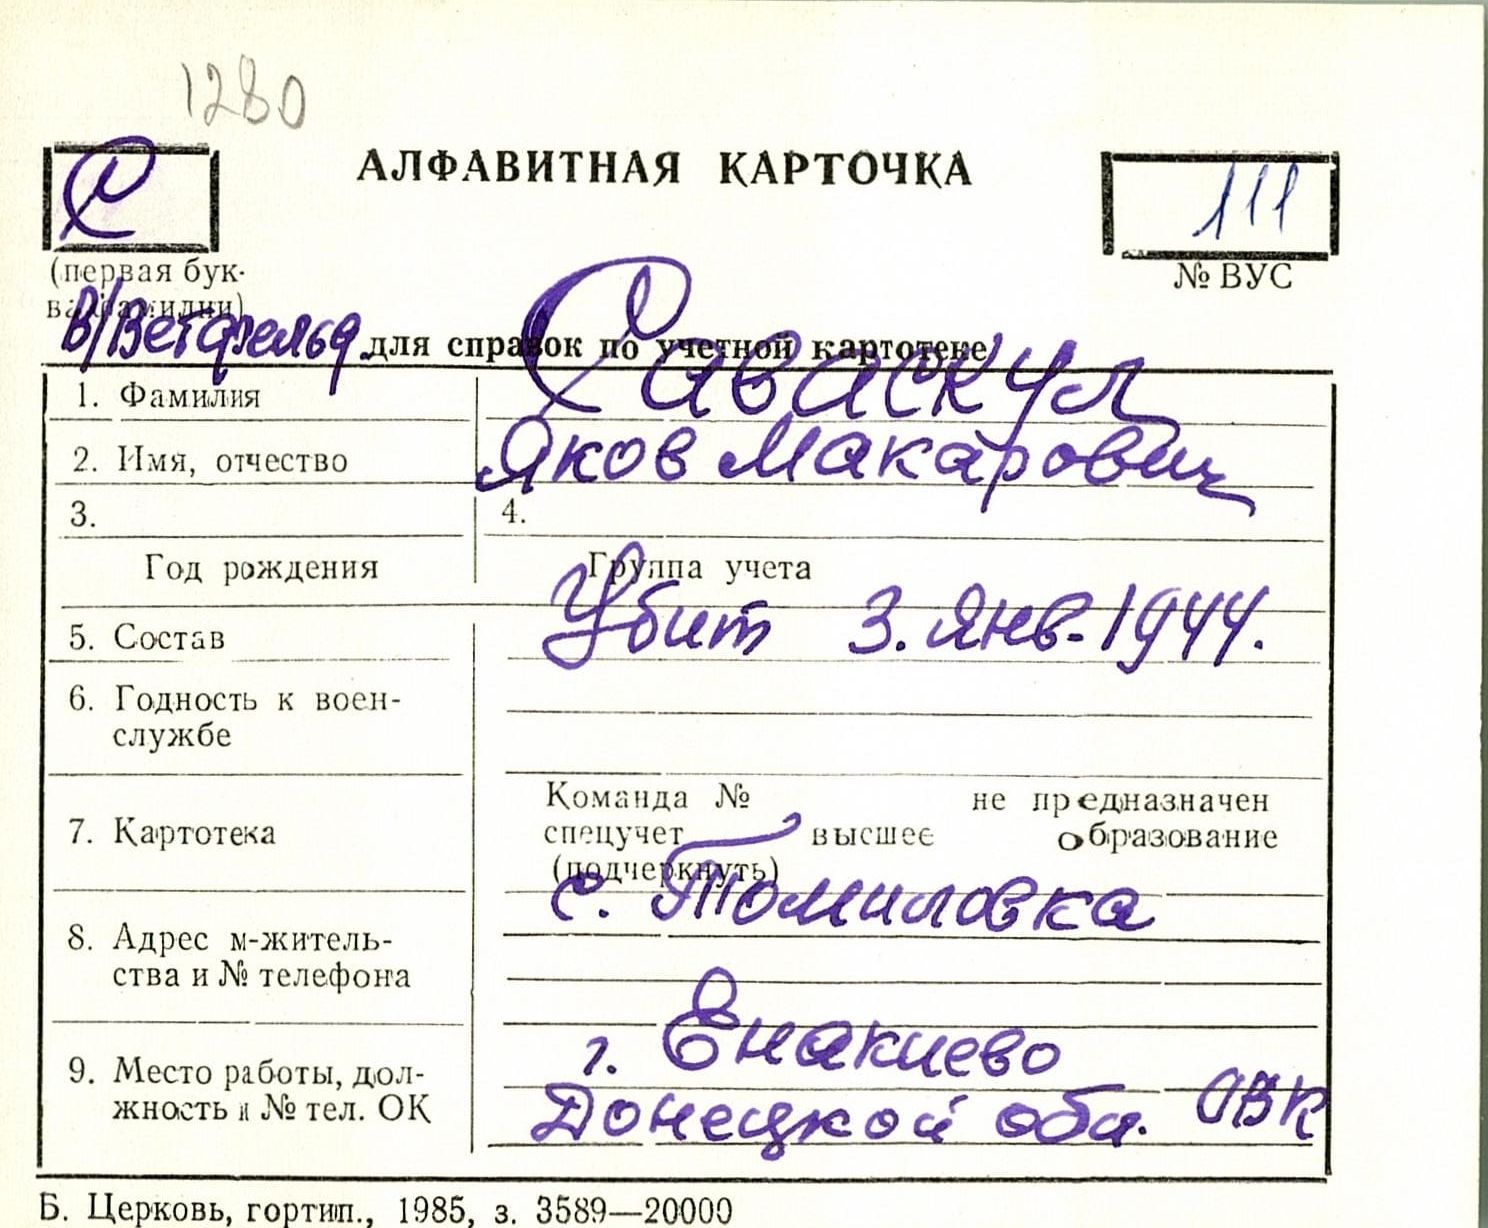 1280
С
АЛФАВИТНАЯ КАРТОЧКА
111
(первая бук-
ва фамилии)
№ ВУС
В/Ветфельд
для справок по учетной картотеке
1. Фамилия Саваскул
2. Имя, отчество Яков Макарович
3. 4.
Год рождения Группа учета
Убит 3. Янв. 1944.
5. Состав
6. Годность к воен-
службе
Команда № не предназначен
7. Картотека спецучет высшее образование
(подчеркнуть)
с. Томиловка
8. Адрес м-житель-
ства и № телефона
г. Енакиево
9. Место работы, дол-
жность и № тел. ОК
Донецкой обл. ОВК
Б. Церковь, гортип., 1985, з. 3589—20000